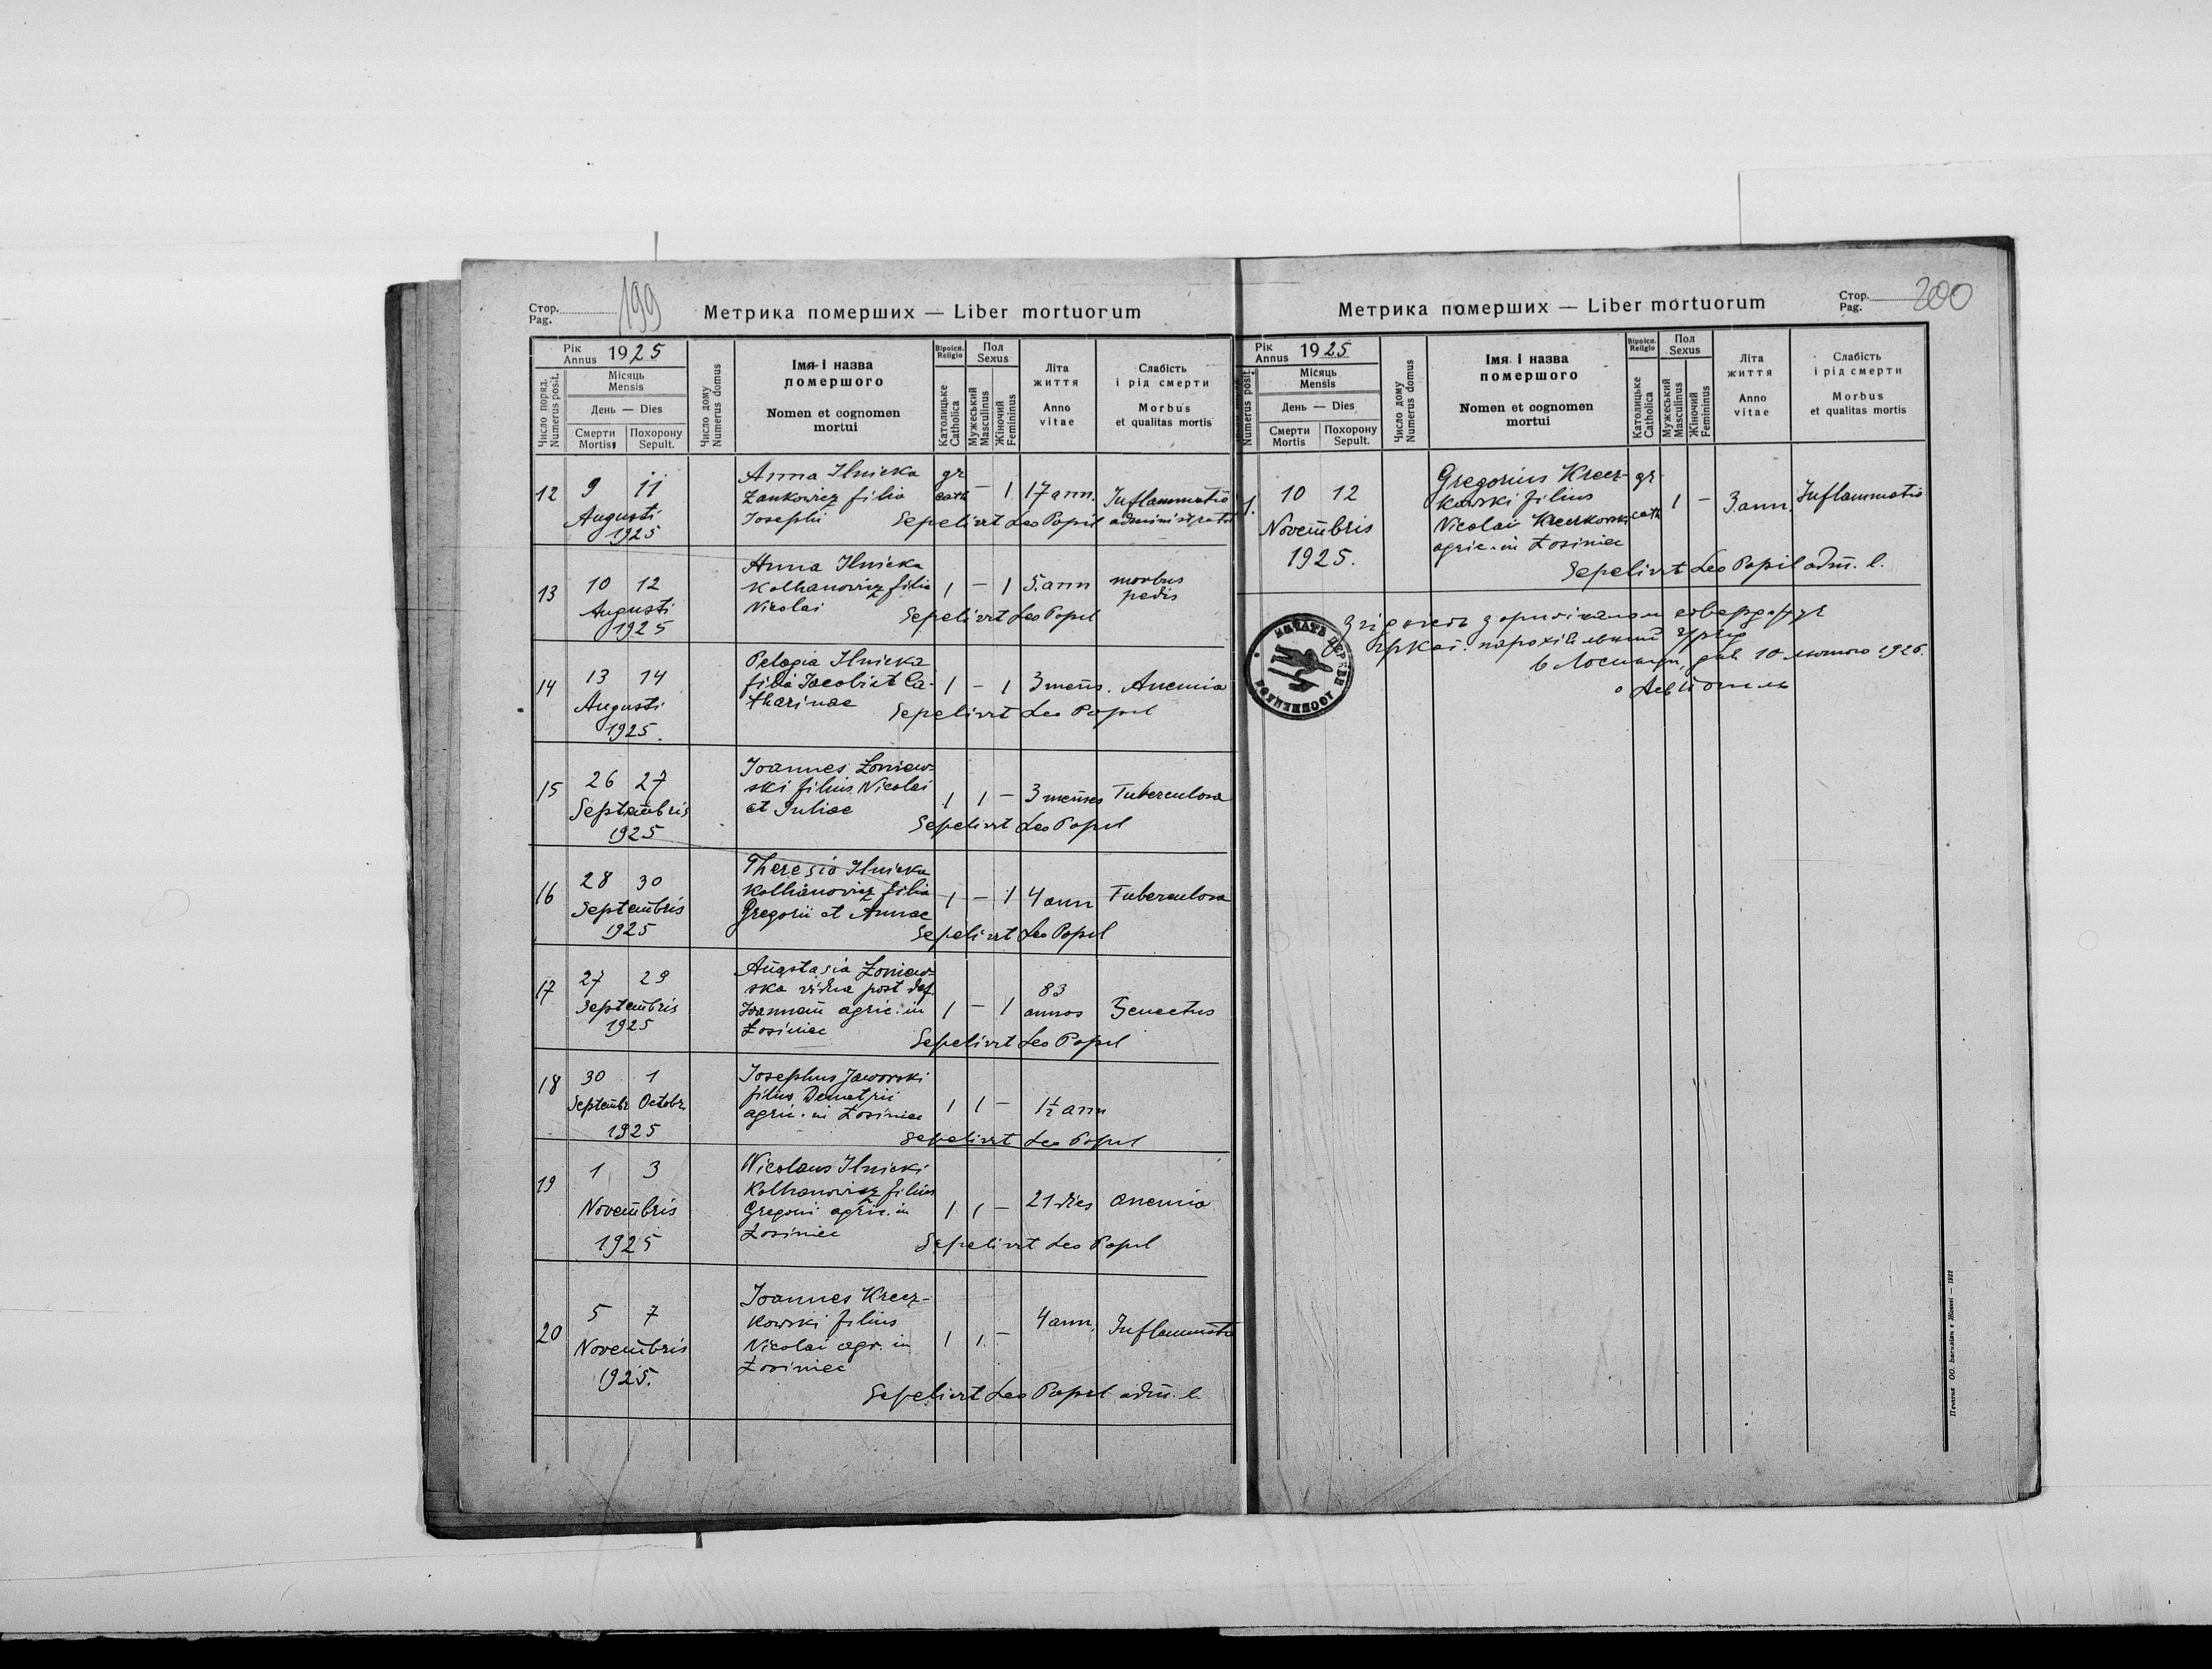 Стор.
Pag.
199
Метрика померших — Liber mortuorum
Рік
Annus 1925
Число поряд.
Numerus posit.
Місяць
Mensis
День — Dies
Смерти
Mortis
Похорону
Sepult.
Число дому
Numerus domus
Імя і назва
помершого
Nomen et cognomen
mortui
Віроісп.
Religio
Католицьке
Catholica
Пол
Sexus
Мужеський
Masculinus
Жіночий
Femininus
Літа
життя
Anno
vitae
Слабість
і рід смерти
Morbus
et qualitas mortis
12 9 11 Augusti 1925
Anna Ilnicka
Zankowicz filia
Josephi
gr
cath – 1 17 ann. Inflammatio
Sepelivit Leo Popil administrator
13 10 12 Augusti 1925
Anna Ilnicka
Kolhanowicz filia
Nicolai
1 – 1 5 ann morbus
pedis
Sepelivit Leo Popil
14 13 14 Augusti 1925.
Pelagia Ilnicka
filia Jacobi et Ca-
tharinae
1 – 1 3 mens. Anemia
Sepelivit Leo Popil
15 26 27 Septembris 1925
Joannes Łoniew-
ski filius Nicolai
et Juliae
1 1 – 3 menses Tuberculosa
Sepelivit Leo Popil
16 28 30 Septembris 1925
Theresia Ilnicka
Kolhanowicz filia
Gregorii et Annae
1 – 1 4 ann Tuberculosa
Sepelivit Leo Popil
17 27 29 Septembris 1925
Anastasia Łoniew-
ska vidua post def.
Joannem agric. in
Łosiniec
1 – 1 83
annos Senectus
Sepelivit Leo Popil
18 30 1
Septembr Octobr 1925
Josephus Jaworski
filius Demetrii
agric. in Łosiniec
1 1 – 1½ ann
Sepelivit Leo Popil
19 1 3 Novembris 1925
Nicolaus Ilnicki
Kolhanowicz filius
Gregorii agric. in
Łosiniec
1 1 – 21 dies anemia
Sepelivit Leo Popil
20 5 7 Novembris 1925.
Joannes Krecz-
kowski filius
Nicolai agr. in
Łosiniec
1 1 – 4 ann. Inflammatio
Sepelivit Leo Popil adm. l.
Метрика померших — Liber mortuorum
Стор.
Pag.
200
Рік
Annus 1925
Numerus posit.
Місяць
Mensis
День — Dies
Смерти
Mortis
Похорону
Sepult.
Число дому
Numerus domus
Імя і назва
помершого
Nomen et cognomen
mortui
Віроісп.
Religio
Католицьке
Catholica
Пол
Sexus
Мужеський
Masculinus
Жіночий
Femininus
Літа
життя
Anno
vitae
Слабість
і рід смерти
Morbus
et qualitas mortis
1. 10 12 Novembris 1925.
Gregorius Krecz-
kowski filius
Nicolai Kreczkowski
agric. in Łosiniec
gr.
cath 1 – 3 ann. Inflammatio
Sepelivit Leo Popil adm. l.
Згідність з оригіналом стверджує
Гр кат. парохіяльний Уряд
в Лосинци, дня 10 лютого 1926.
о Лев Попіль
ПЕЧАТЬ ЦЕРКВИ